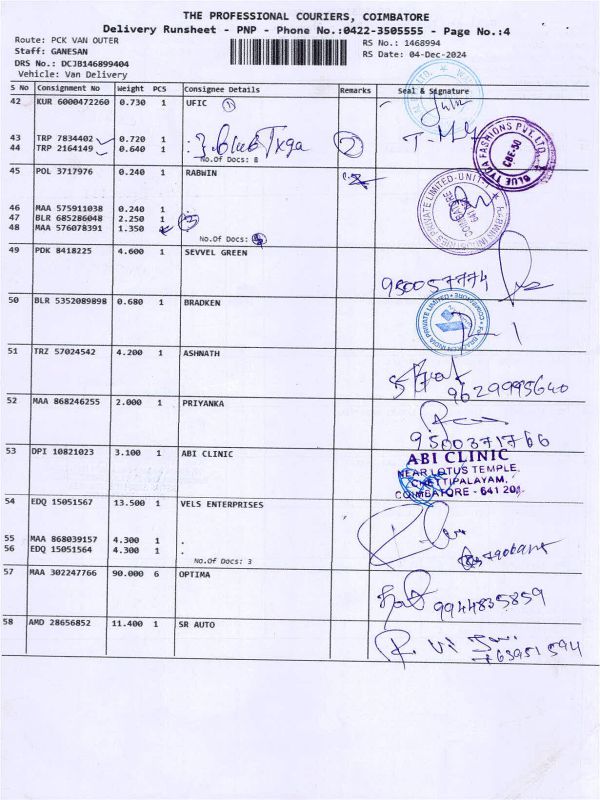 THE PROFESSIONAL COURIERS, COIMBATORE
Delivery Runsheet - PNP - Phone No.:0422-3505555 - Page No.:4
Route: PCK VAN OUTER
RS No.: 1468994
Staff: GANESAN
RS Date: 04-Dec-2024
DRS No.: DCJB146899404
Vehicle: Van Delivery
S No Consignment No Weight PCS Consignee Details Remarks Seal & Signature
42 KUR 6000472260 0.730 1 UFIC 1
43 TRP 7834402 0.720 1
44 TRP 2164149 0.640 1 : 3 Blue Tyga 2
No.Of Docs: 8
BLUE TYGA FASHIONS PVT. LTD. CBE-50
45 POL 3717976 0.240 1 RABWIN
46 MAA 575911038 0.240 1
47 BLR 685286048 2.250 1 3
48 MAA 576078391 1.350
No.Of Docs:
49 PDK 8418225 4.600 1 SEVVEL GREEN
50 BLR 5352089898 0.680 1 BRADKEN
51 TRZ 57024542 4.200 1 ASHNATH
9629995640
52 MAA 868246255 2.000 1 PRIYANKA
9500371766
53 DPI 10821023 3.100 1 ABI CLINIC
ABI CLINIC
NEAR LOTUS TEMPLE,
CHETTIPALAYAM,
COIMBATORE - 641 201.
54 EDQ 15051567 13.500 1 VELS ENTERPRISES
55 MAA 868039157 4.300 1 .
56 EDQ 15051564 4.300 1 .
No.Of Docs: 3
57 MAA 302247766 90.000 6 OPTIMA
9944835859
58 AMD 28656852 11.400 1 SR AUTO